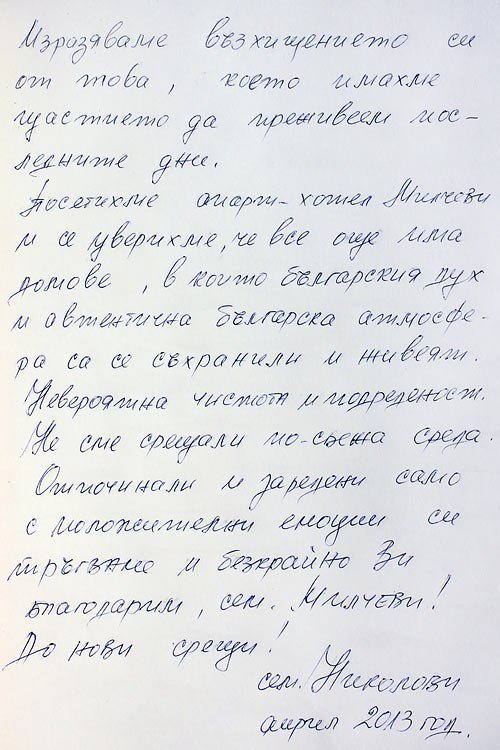 Изразяваме възхищението си
от това, което имахме
щастието да преживеем пос-
ледните дни.
Посетихме апарт-хотел Милчеви
и се уверихме, че все още има
домове, в които българския дух
и автентична българска атмосфе-
ра са се съхранили и живеят.
Невероятна чистота и подреденост.
Не сме срещали по-свежа среда.
Отпочинали и заредени само
с положителни емоции си
тръгваме и безкрайно Ви
благодарим, сем. Милчеви!
До нови срещи!
сем. Николови
април 2013 год.